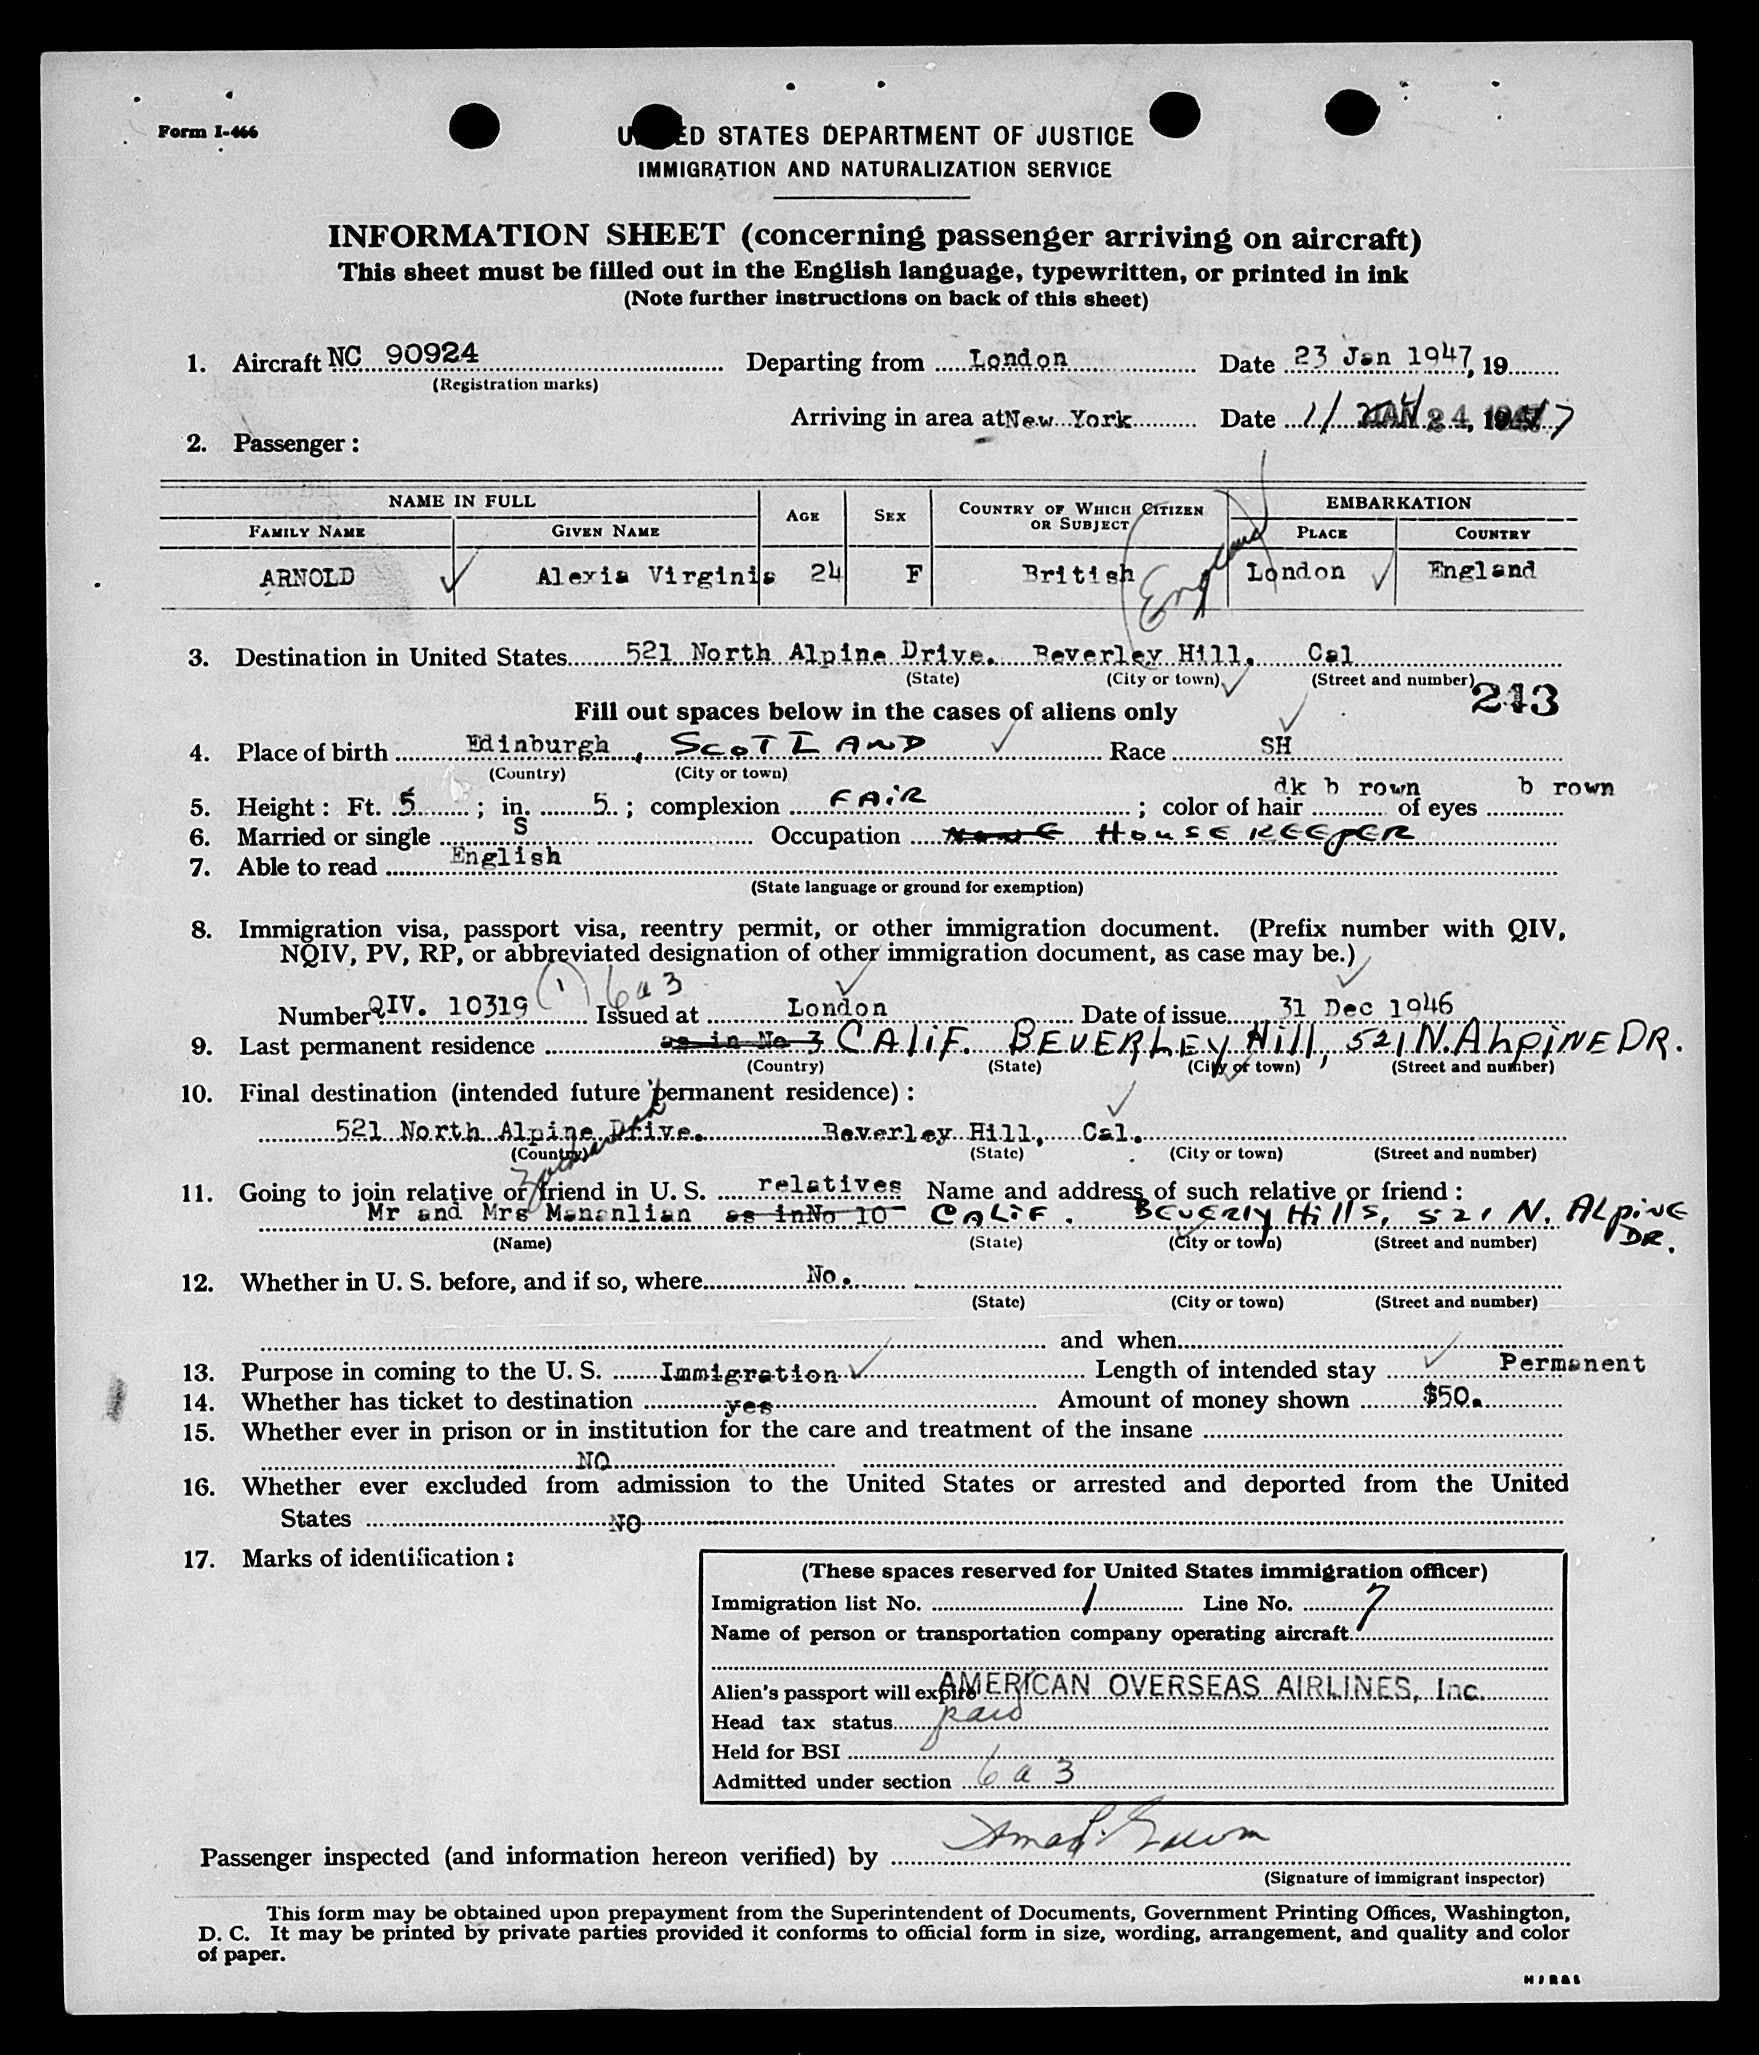 Form I-466
UNITED STATES DEPARTMENT OF JUSTICE
IMMIGRATION AND NATURALIZATION SERVICE
INFORMATION SHEET (concerning passenger arriving on aircraft)
This sheet must be filled out in the English language, typewritten, or printed in ink
(Note further instructions on back of this sheet)
1. Aircraft NC 90924 Departing from London Date 23 Jan 1947, 19
(Registration marks)
Arriving in area at New York Date JAN 24 1947
2. Passenger:
NAME IN FULL AGE SEX COUNTRY OF WHICH CITIZEN OR SUBJECT EMBARKATION
FAMILY NAME GIVEN NAME PLACE COUNTRY
ARNOLD Alexia Virginia 24 F British (England) London England
3. Destination in United States 521 North Alpine Drive. Beverley Hill. Cal
(State) (City or town) (Street and number)
243
Fill out spaces below in the cases of aliens only
4. Place of birth Edinburgh, SCOTLAND Race SH
(Country) (City or town)
5. Height: Ft. 5; in. 5; complexion FAIR; color of hair dk b rown of eyes b rown
6. Married or single S Occupation NONE HOUSEKEEPER
7. Able to read English
(State language or ground for exemption)
8. Immigration visa, passport visa, reentry permit, or other immigration document. (Prefix number with QIV,
NQIV, PV, RP, or abbreviated designation of other immigration document, as case may be.)
Number QIV. 10319 (1) 6a3 Issued at London Date of issue 31 Dec 1946
9. Last permanent residence as in No 3 CALIF. BEVERLEY Hill, 521 N. AlpiNE DR.
(Country) (State) (City or town) (Street and number)
10. Final destination (intended future permanent residence):
521 North Alpine Drive. Beverley Hill, Cal.
(Country) (State) (City or town) (Street and number)
11. Going to join relative or friend in U. S. relatives Name and address of such relative or friend:
Mr and Mrs Mananlian as inNo 10 CALIF. BEVERLY HILLS, 521 N. ALPINE DR.
(Name) (State) (City or town) (Street and number)
12. Whether in U. S. before, and if so, where No.
(State) (City or town) (Street and number)
and when
13. Purpose in coming to the U. S. Immigration Length of intended stay Permanent
14. Whether has ticket to destination yes Amount of money shown $50.
15. Whether ever in prison or in institution for the care and treatment of the insane
NO
16. Whether ever excluded from admission to the United States or arrested and deported from the United
States NO
17. Marks of identification:
(These spaces reserved for United States immigration officer)
Immigration list No. 1 Line No. 7
Name of person or transportation company operating aircraft
AMERICAN OVERSEAS AIRLINES, Inc.
Alien's passport will expire
Head tax status paid
Held for BSI
Admitted under section 6 a 3
Passenger inspected (and information hereon verified) by
(Signature of immigrant inspector)
This form may be obtained upon prepayment from the Superintendent of Documents, Government Printing Offices, Washington,
D. C. It may be printed by private parties provided it conforms to official form in size, wording, arrangement, and quality and color
of paper.